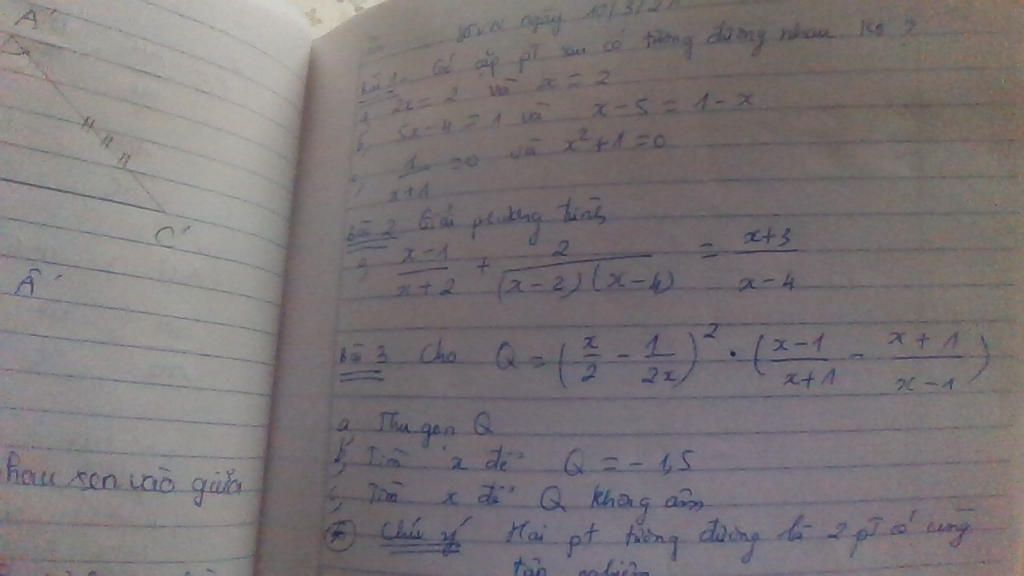 A'
C'
A'
hau xen vào giữa
ngày 10/3/2
Bài 1. Các cặp pt sau có tương đương nhau ko?
a, 2x = 2 và x = 2
b, 5x - 4 = 1 và x - 5 = 1 - x
c, 1/(x+1) = 0 và x² + 1 = 0
Bài 2 Giải phương trình
a, (x-1)/(x+2) + 2/((x-2)(x-4)) = (x+3)/(x-4)
Bài 3 Cho Q = (x/2 - 1/2x)² · ((x-1)/(x+1) - (x+1)/(x-1))
a, Thu gọn Q
b, Tìm x để Q = -1,5
c, Tìm x để Q không âm
* Chú ý Hai pt tương đương là 2 pt có cùng
tập nghiệm